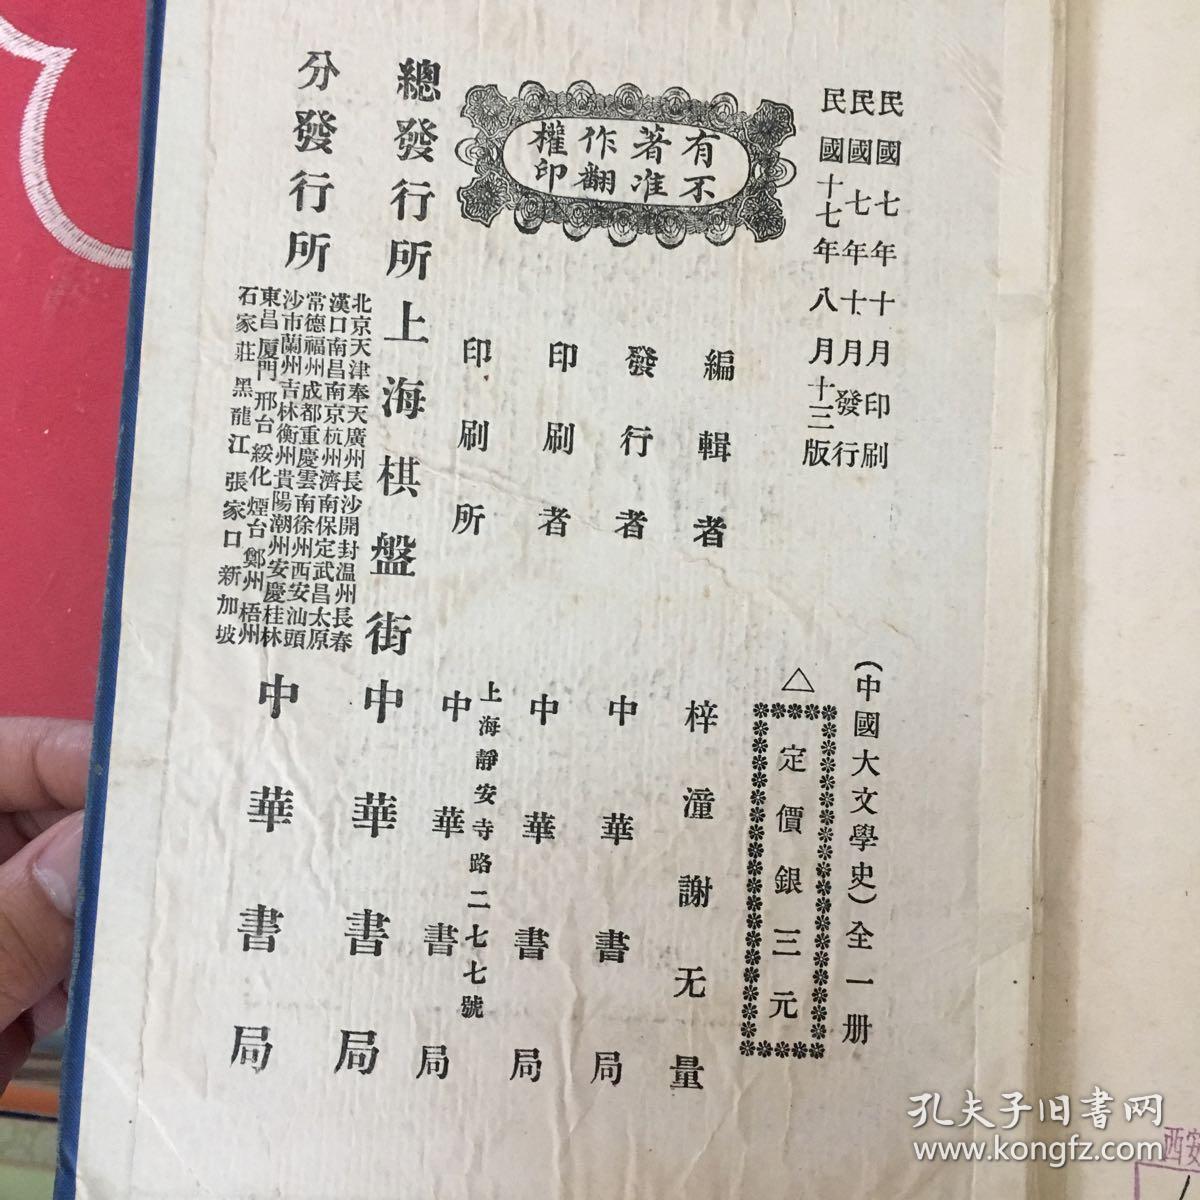 民國七年十月印刷
民國七年十月發行
民國十七年八月十三版
（中國大文學史）全一册
△
定價銀三元
有著作權
不准翻印
編輯者 梓潼謝无量
發行者 中華書局
印刷者 中華書局
印刷所 上海靜安寺路二七七號
中華書局
總發行所 上海棋盤街 中華書局
分發行所
北京天津奉天廣州長沙開封温州長春
漢口南昌南京杭州濟南保定武昌太原
常德福州成都重慶雲南徐州西安汕頭
沙市蘭州吉林衡州貴陽潮州安慶桂林
東昌厦門邢台綏化煙台鄭州梧州
石家莊黑龍江張家口新加坡
中華書局
孔夫子旧書网
www.kongfz.com
西安